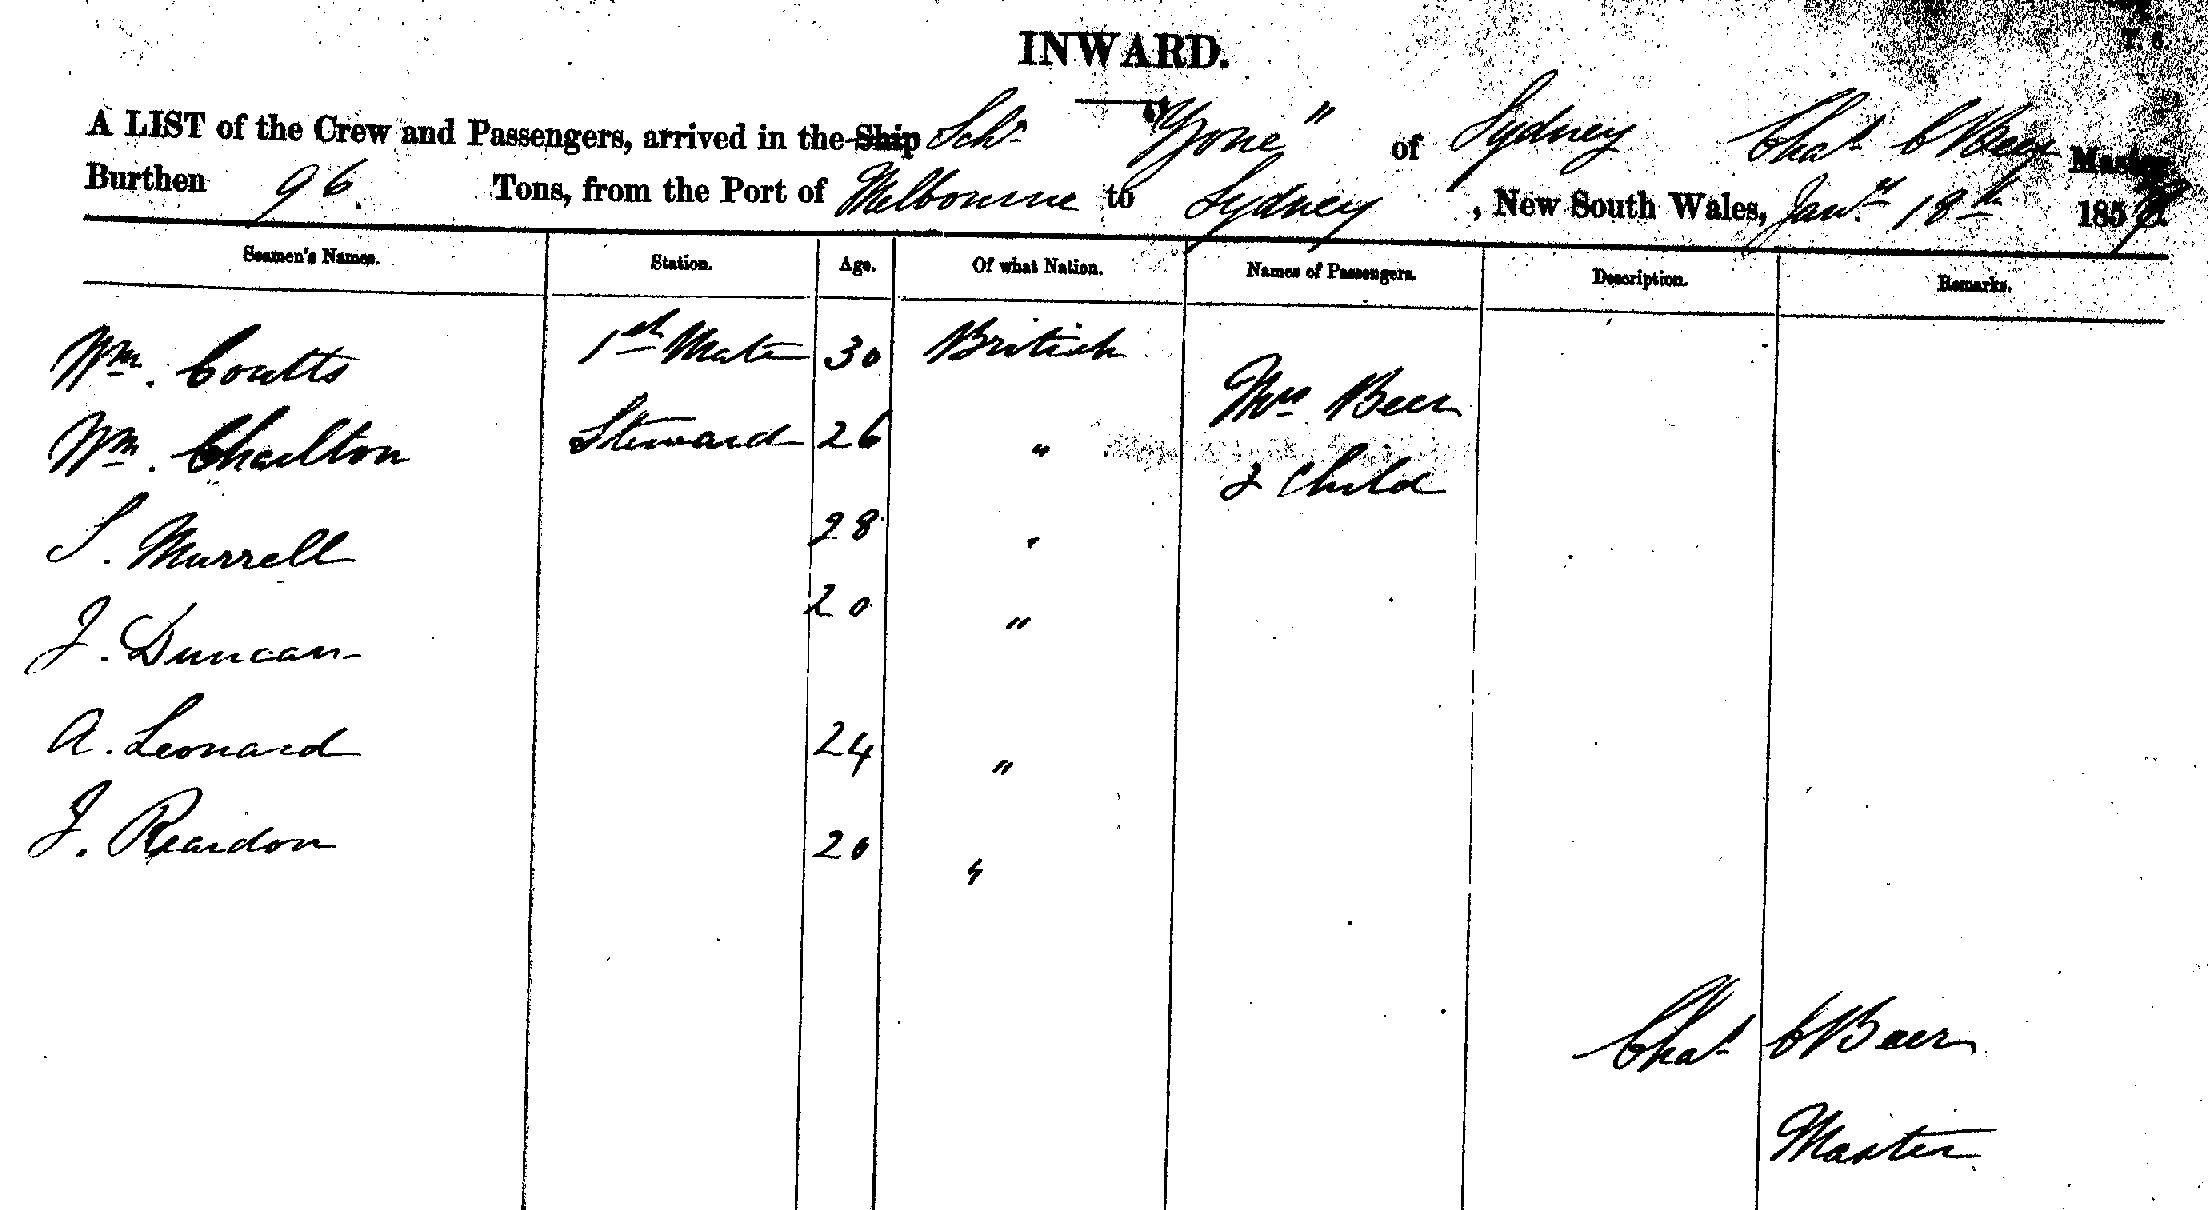 INWARD.
A LIST of the Crew and Passengers, arrived in the Ship Schr "Yone" of Sydney Chas C Beer Master
Burthen 96. Tons, from the Port of Melbourne to Sydney, New South Wales, Jany. 18th 185
Seamen's Names. Station. Age. Of what Nation. Names of Passengers. Description. Remarks.
Wm. Coutts 1st Mate 30 British
Mrs Beer
Wm. Charlton Steward 26 "
& Child
S. Murrell 28 "
J. Duncan 20 "
A. Leonard 24 "
J. Reardon 20 "
Chas C Beer
Master